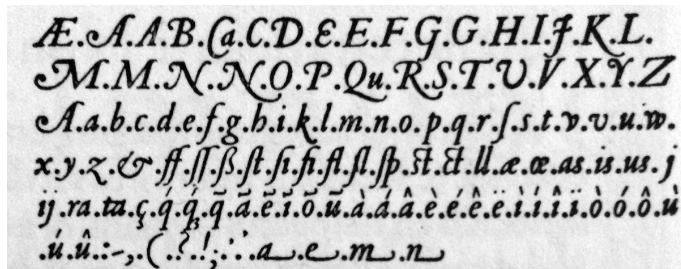 Æ.A.A.B.Ca.C.D.E.E.F.G.G.H.I.J.K.L.
M.M.N.N.O.P.Qu.R.S.T.U.V.X.Y.Z
A.a.b.c.d.e.f.g.h.i.k.l.m.n.o.p.q.r.ſ.s.t.v.v.u.w.
x.y.z.&.ff.ſſ.ß.ſt.ſi.fi.fl.ſl.ſp.st.ct.ll.æ.œ.as.is.us.j
ij.ra.ta.ç.q́.q̃.ã.ẽ.ĩ.õ.ũ.à.á.â.è.é.ê.ë.ì.í.î.ï.ò.ó.ô.ù
.ú.û.:-,.(.?.!;.'.a.e.m.n